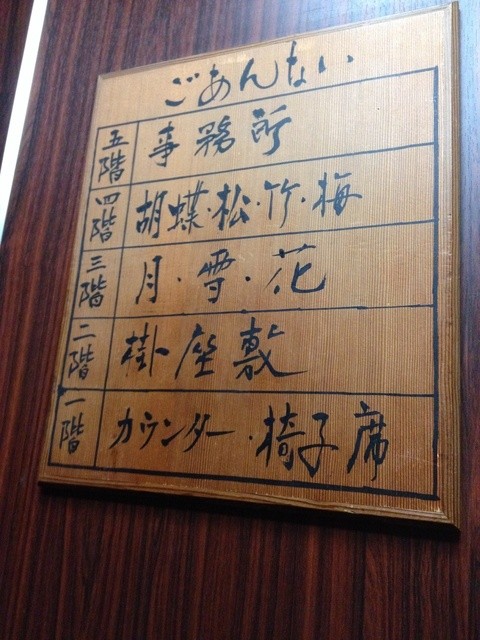 ごあんない
五階 事務所
四階 胡蝶・松・竹・梅
三階 月・雪・花
二階 掛座敷
一階 カウンター・椅子席